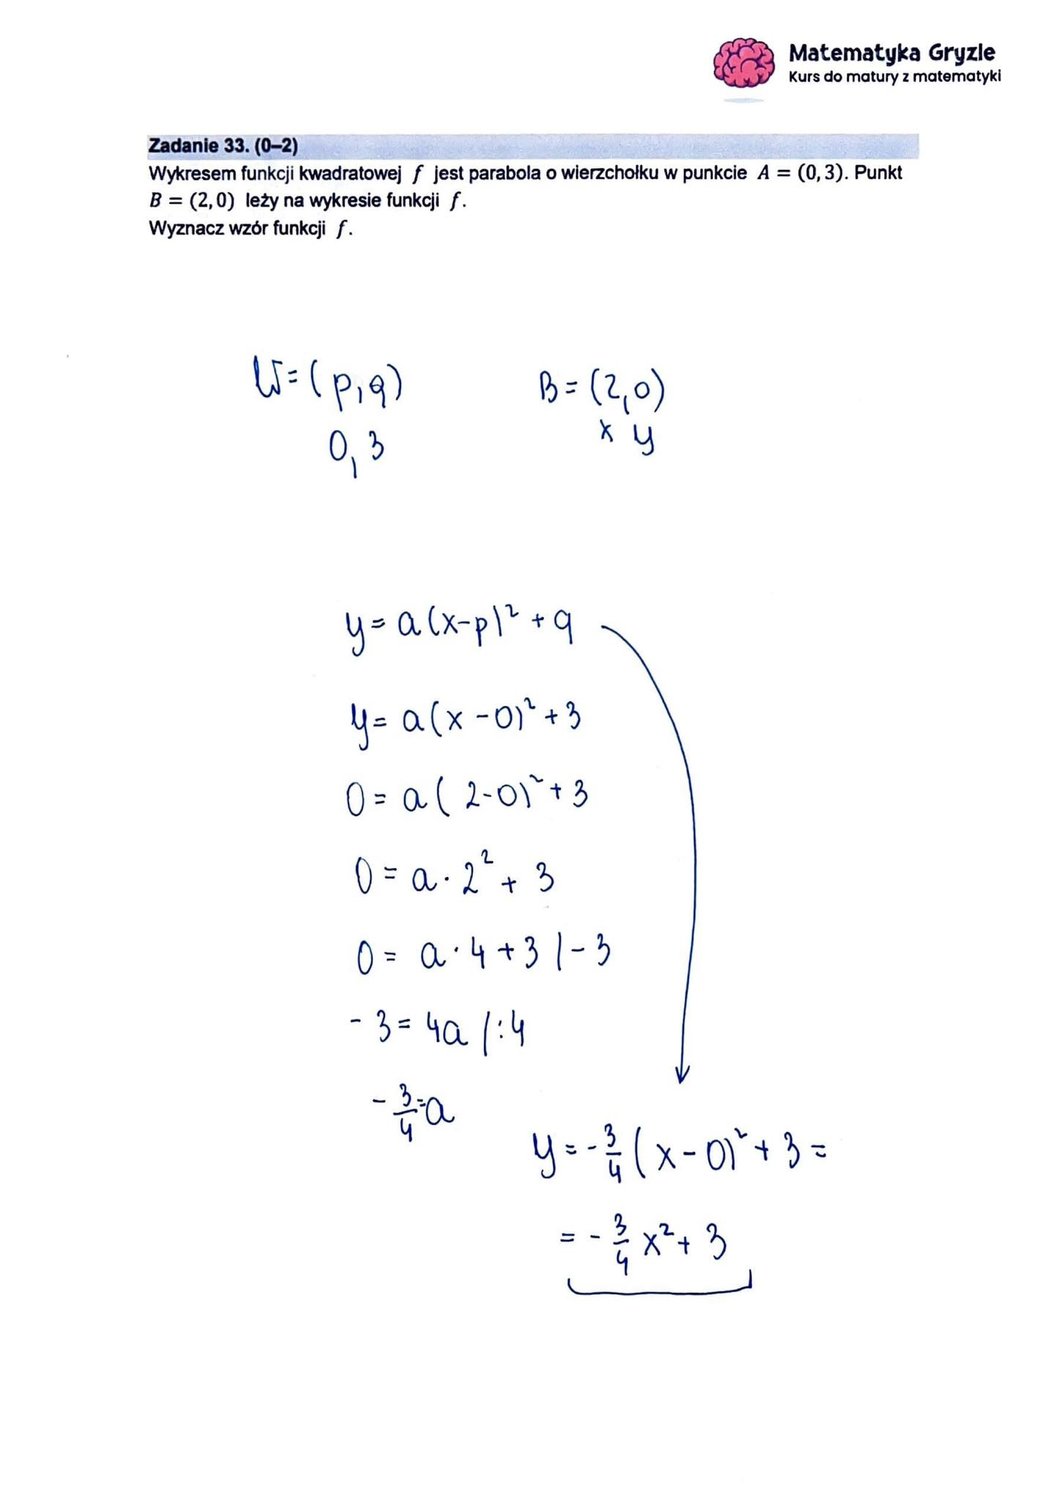 Matematyka Gryzie
Kurs do matury z matematyki
Zadanie 33. (0–2)
Wykresem funkcji kwadratowej f jest parabola o wierzchołku w punkcie A = (0, 3). Punkt
B = (2, 0) leży na wykresie funkcji f.
Wyznacz wzór funkcji f.
W=(p,q) B=(2,0)
0,3 x y
y=a(x-p)²+q
y=a(x-0)²+3
0=a(2-0)²+3
0=a·2²+3
0=a·4+3 |-3
-3=4a |:4
-3/4=a
y=-3/4(x-0)²+3=
=-3/4x²+3